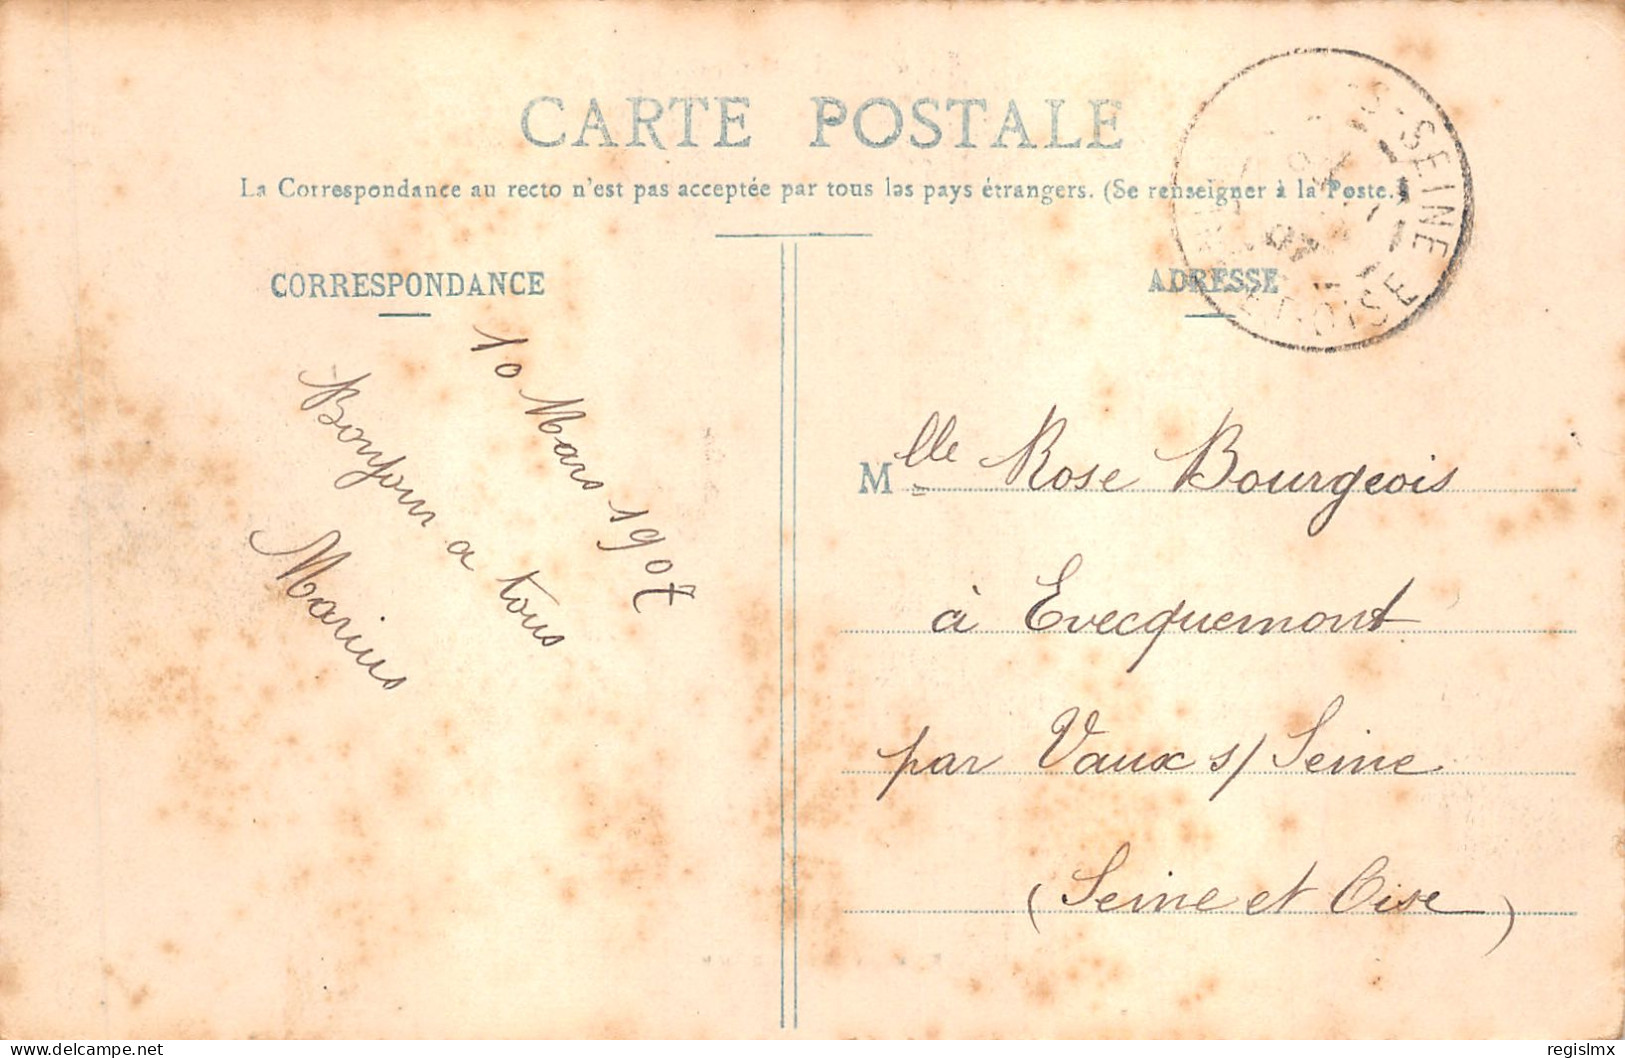 CARTE POSTALE
La Correspondance au recto n'est pas acceptée par tous les pays étrangers. (Se renseigner à la Poste.)
CORRESPONDANCE
ADRESSE
10 Mars 1907
Bonjour a tous
Marius
Mlle Rose Bourgeois
à Evecquemont
par Vaux s/ Seine
(Seine et Oise)
S-SEINE
07
ET-OISE
delcampe.net
regislmx